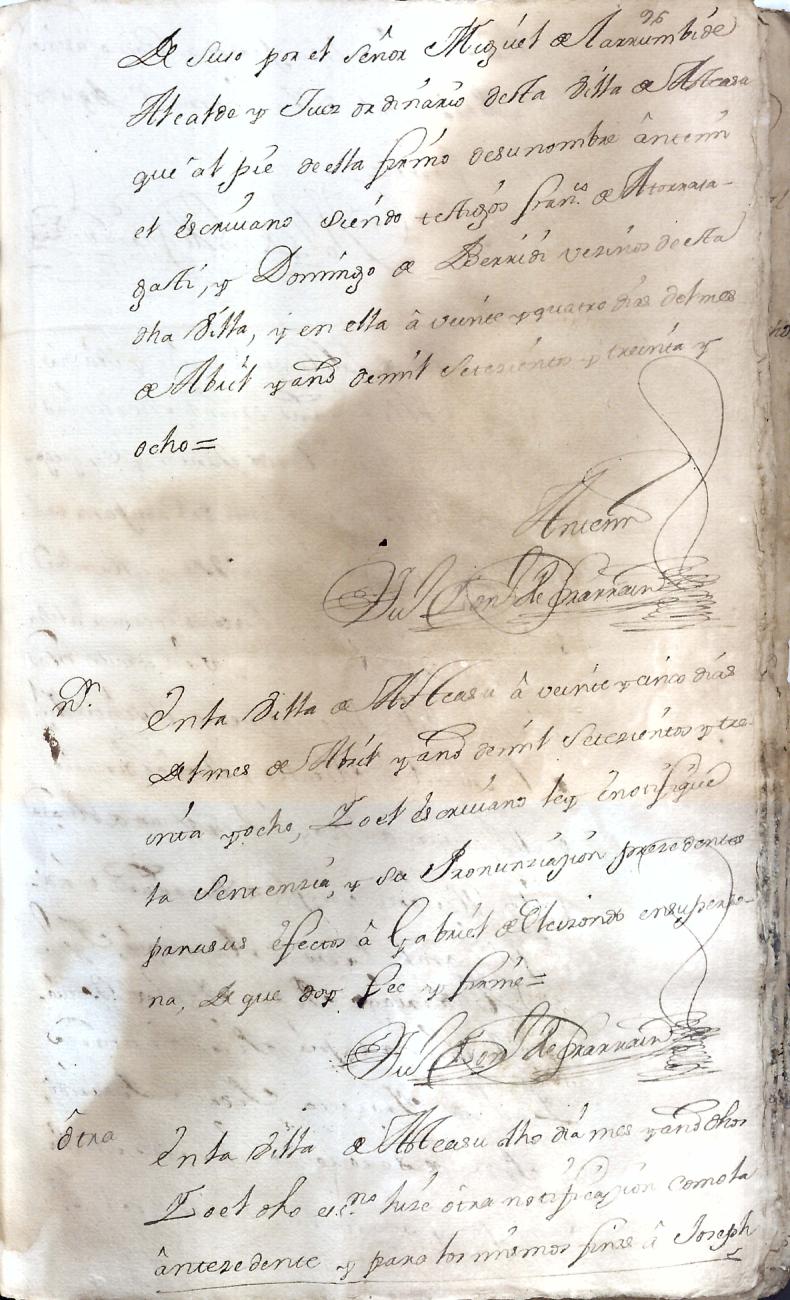 96
De suso por el señor Miguel de Larrumbide
Alcalde y Juez ordinario desta Villa de Alteasu
que al pie de ella firmo de su nombre ante mi
el escriuano siendo testigos fran.co de Atorrasa-
gasti, y Domingo de Berridi vezinos de esta
dha Villa, y en ella â veinte y quatro dias del mes
de Abril y año de mil setezientos y treinta y
ocho=
Ante mi
de Yrarrain
N.
En la Villa de Alteasu â veinte y cinco dias
del mes de Abril y año de mil setezientos y tre-
inta y ocho, Yo el escriuano ley e notifiqué
la Sentenzia, y su Pronunziazion prezedentes
para sus efectos â Gabriel de Eleizondo en su perso-
na, de que doy fee y firmé=
de Yrarrain
ôtra
En la Villa de Alteasu dho dia mes y año dhos
Yo el dho es.no hize ôtra notificazion como la
ântezedente y para los mismos fines â Joseph